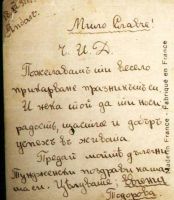 Мило Славче!
Ч. И. Д.
Пожелавам ти весело
прикарване празницитѣ си
И нека той да ти носи
радость, щастие и добъръ
успехъ въ живота
Предай моитѣ далечни
поздрави на
маси. Цѣлуваме
Тодорова
Made in France - Fabriqué en France